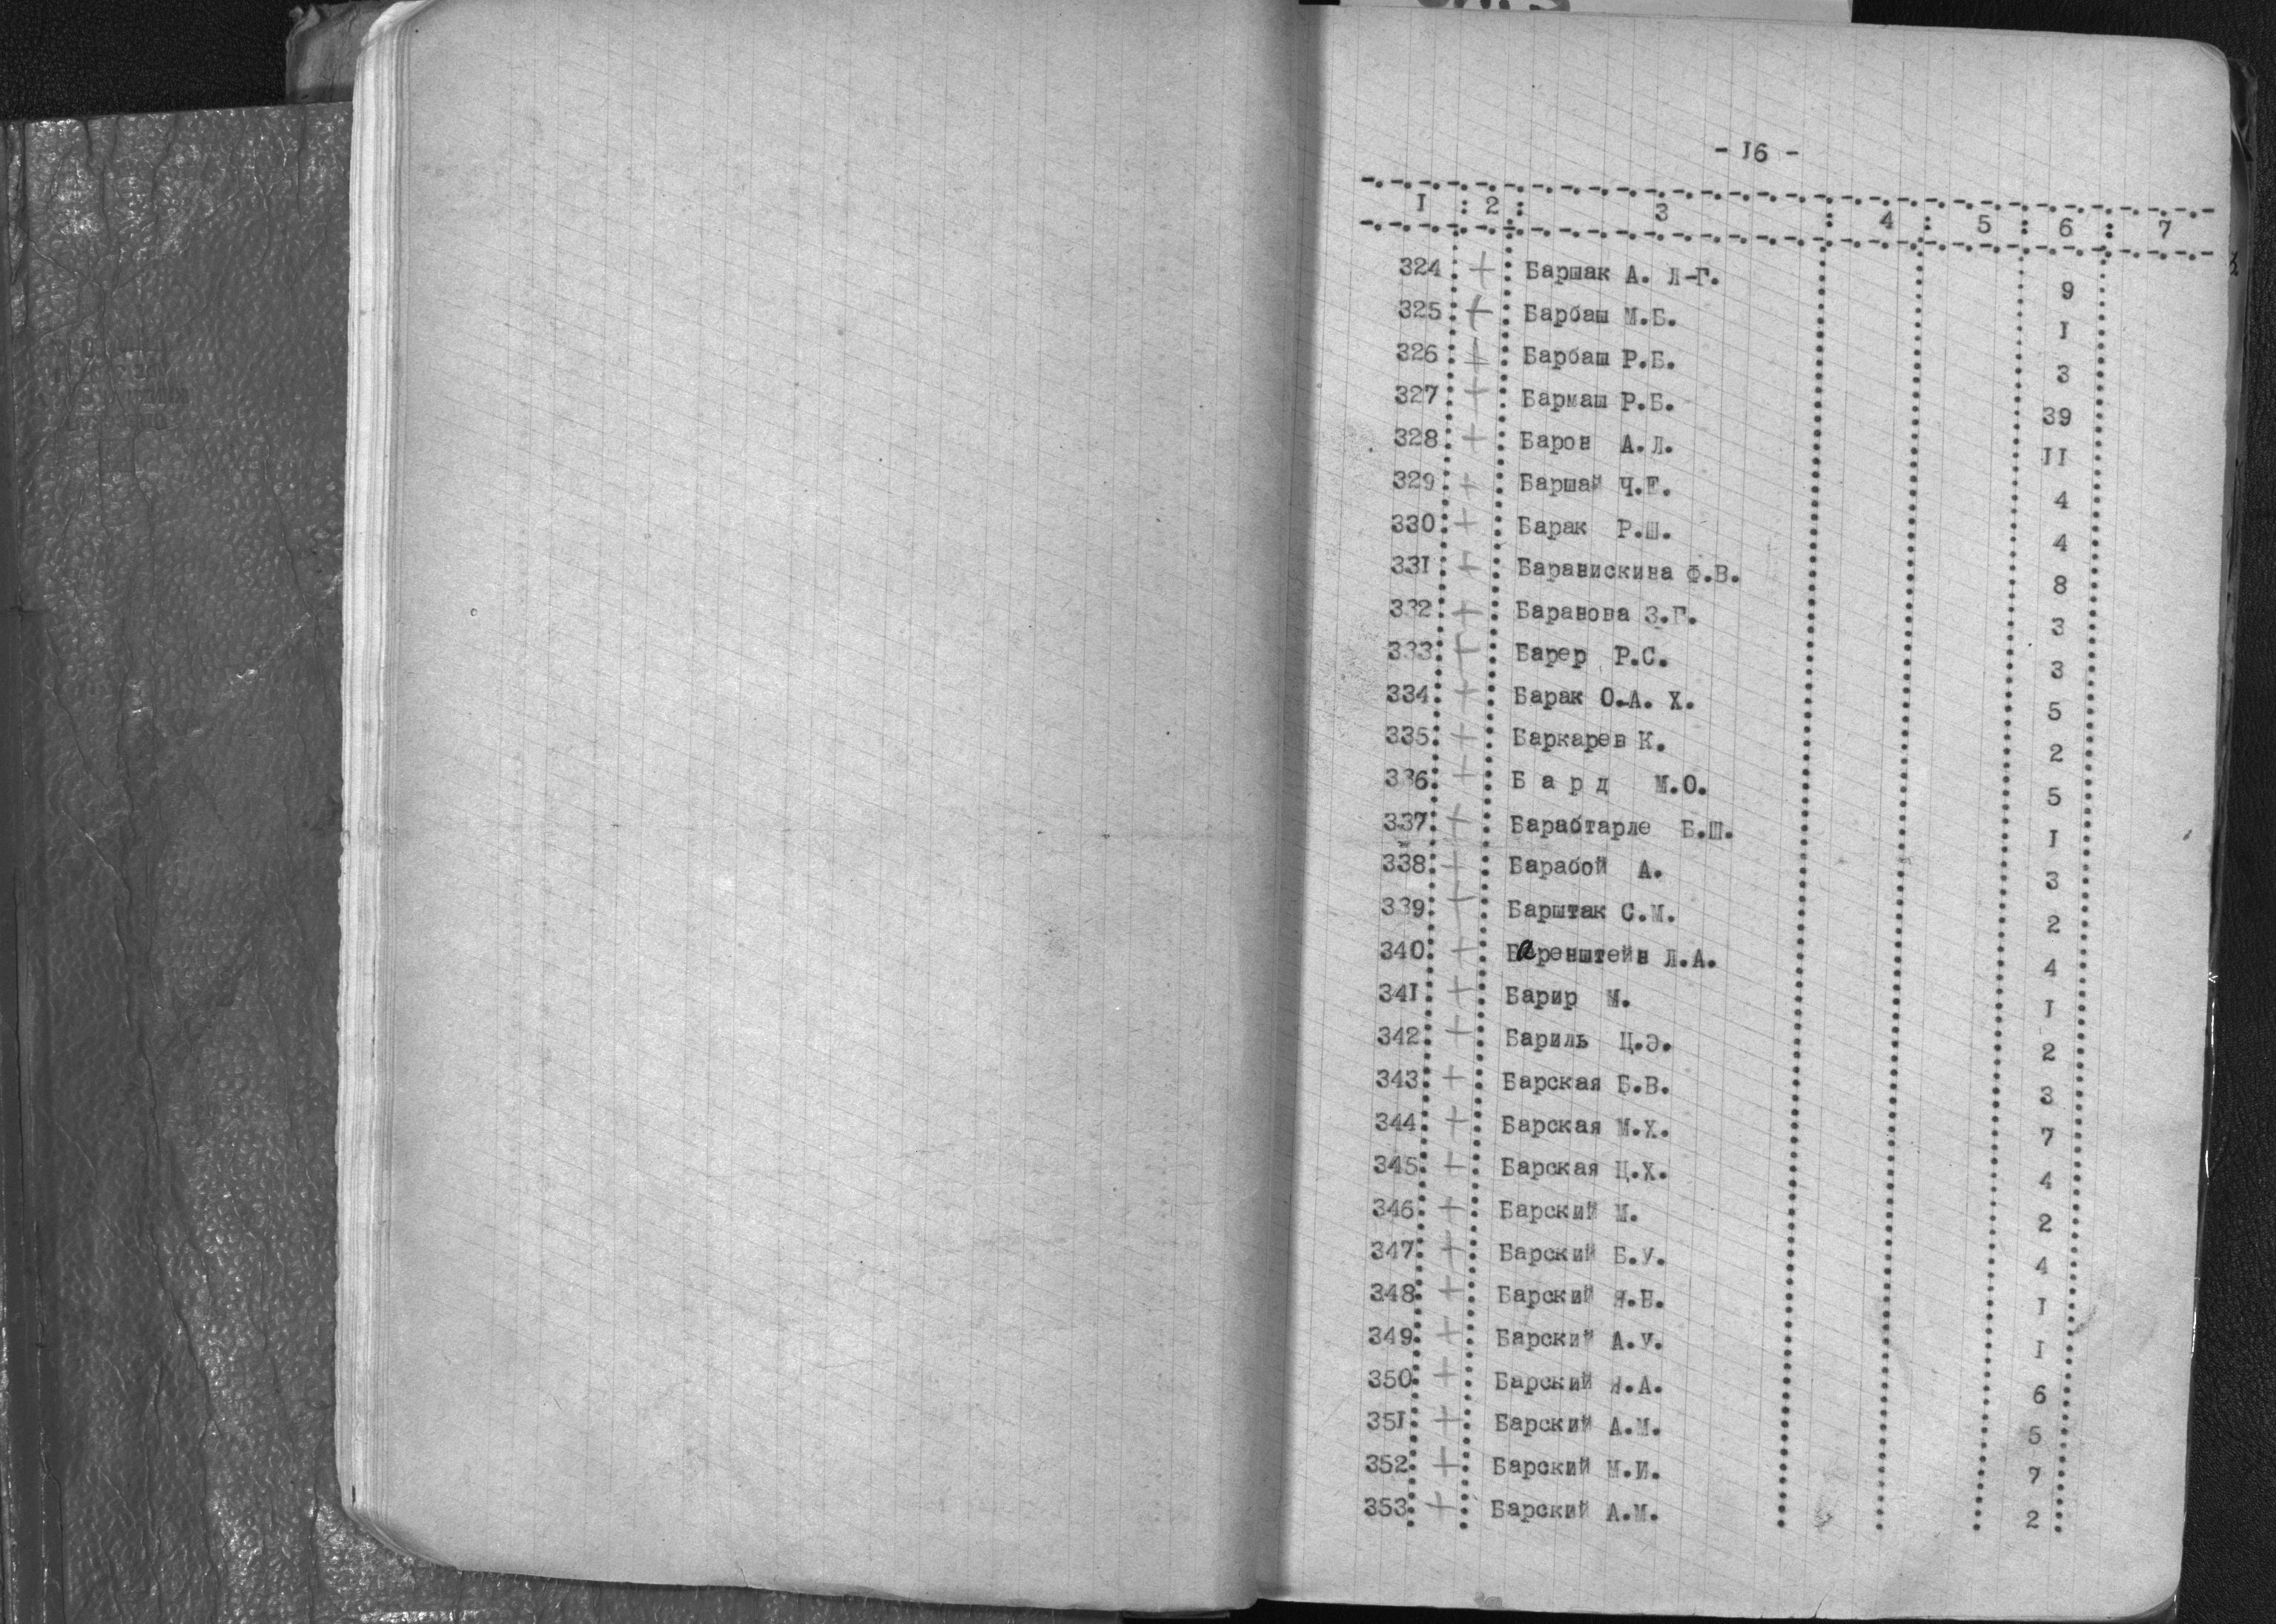 - I6 -
I : 2 : 3 : 4 : 5 : 6 : 7
324 + Баршак А. Л-Г. 9
325 + Барбаш М.Б. I
326 + Барбаш Р.Б. 3
327 + Бармаш Р.Б. 39
328 + Барон А.Л. II
329 + Баршай Ч.Е. 4
330 + Барак Р.Ш. 4
33I + Баранискина Ф.В. 8
332 + Баранова З.Г. 3
333 + Барер Р.С. 3
334 + Барак О.-А. Х. 5
335 + Баркарев К. 2
336 + Б а р д М.О. 5
337 + Барабтарле Б.Ш. I
338 + Барабой А. 3
339 + Барштак С.М. 2
340 + Баренштейн Л.А. 4
34I + Барир М. I
342 + Бариль Ц.Э. 2
343 + Барская Б.В. 3
344 + Барская М.Х. 7
345 + Барская Ц.Х. 4
346 + Барский М. 2
347 + Барский Б.У. 4
348 + Барский I
349 + Барский А.У. I
350 + Барский 6
35I + Барский А.М. 5
352 + Барский М.И. 7
353 + Барский А.М. 2